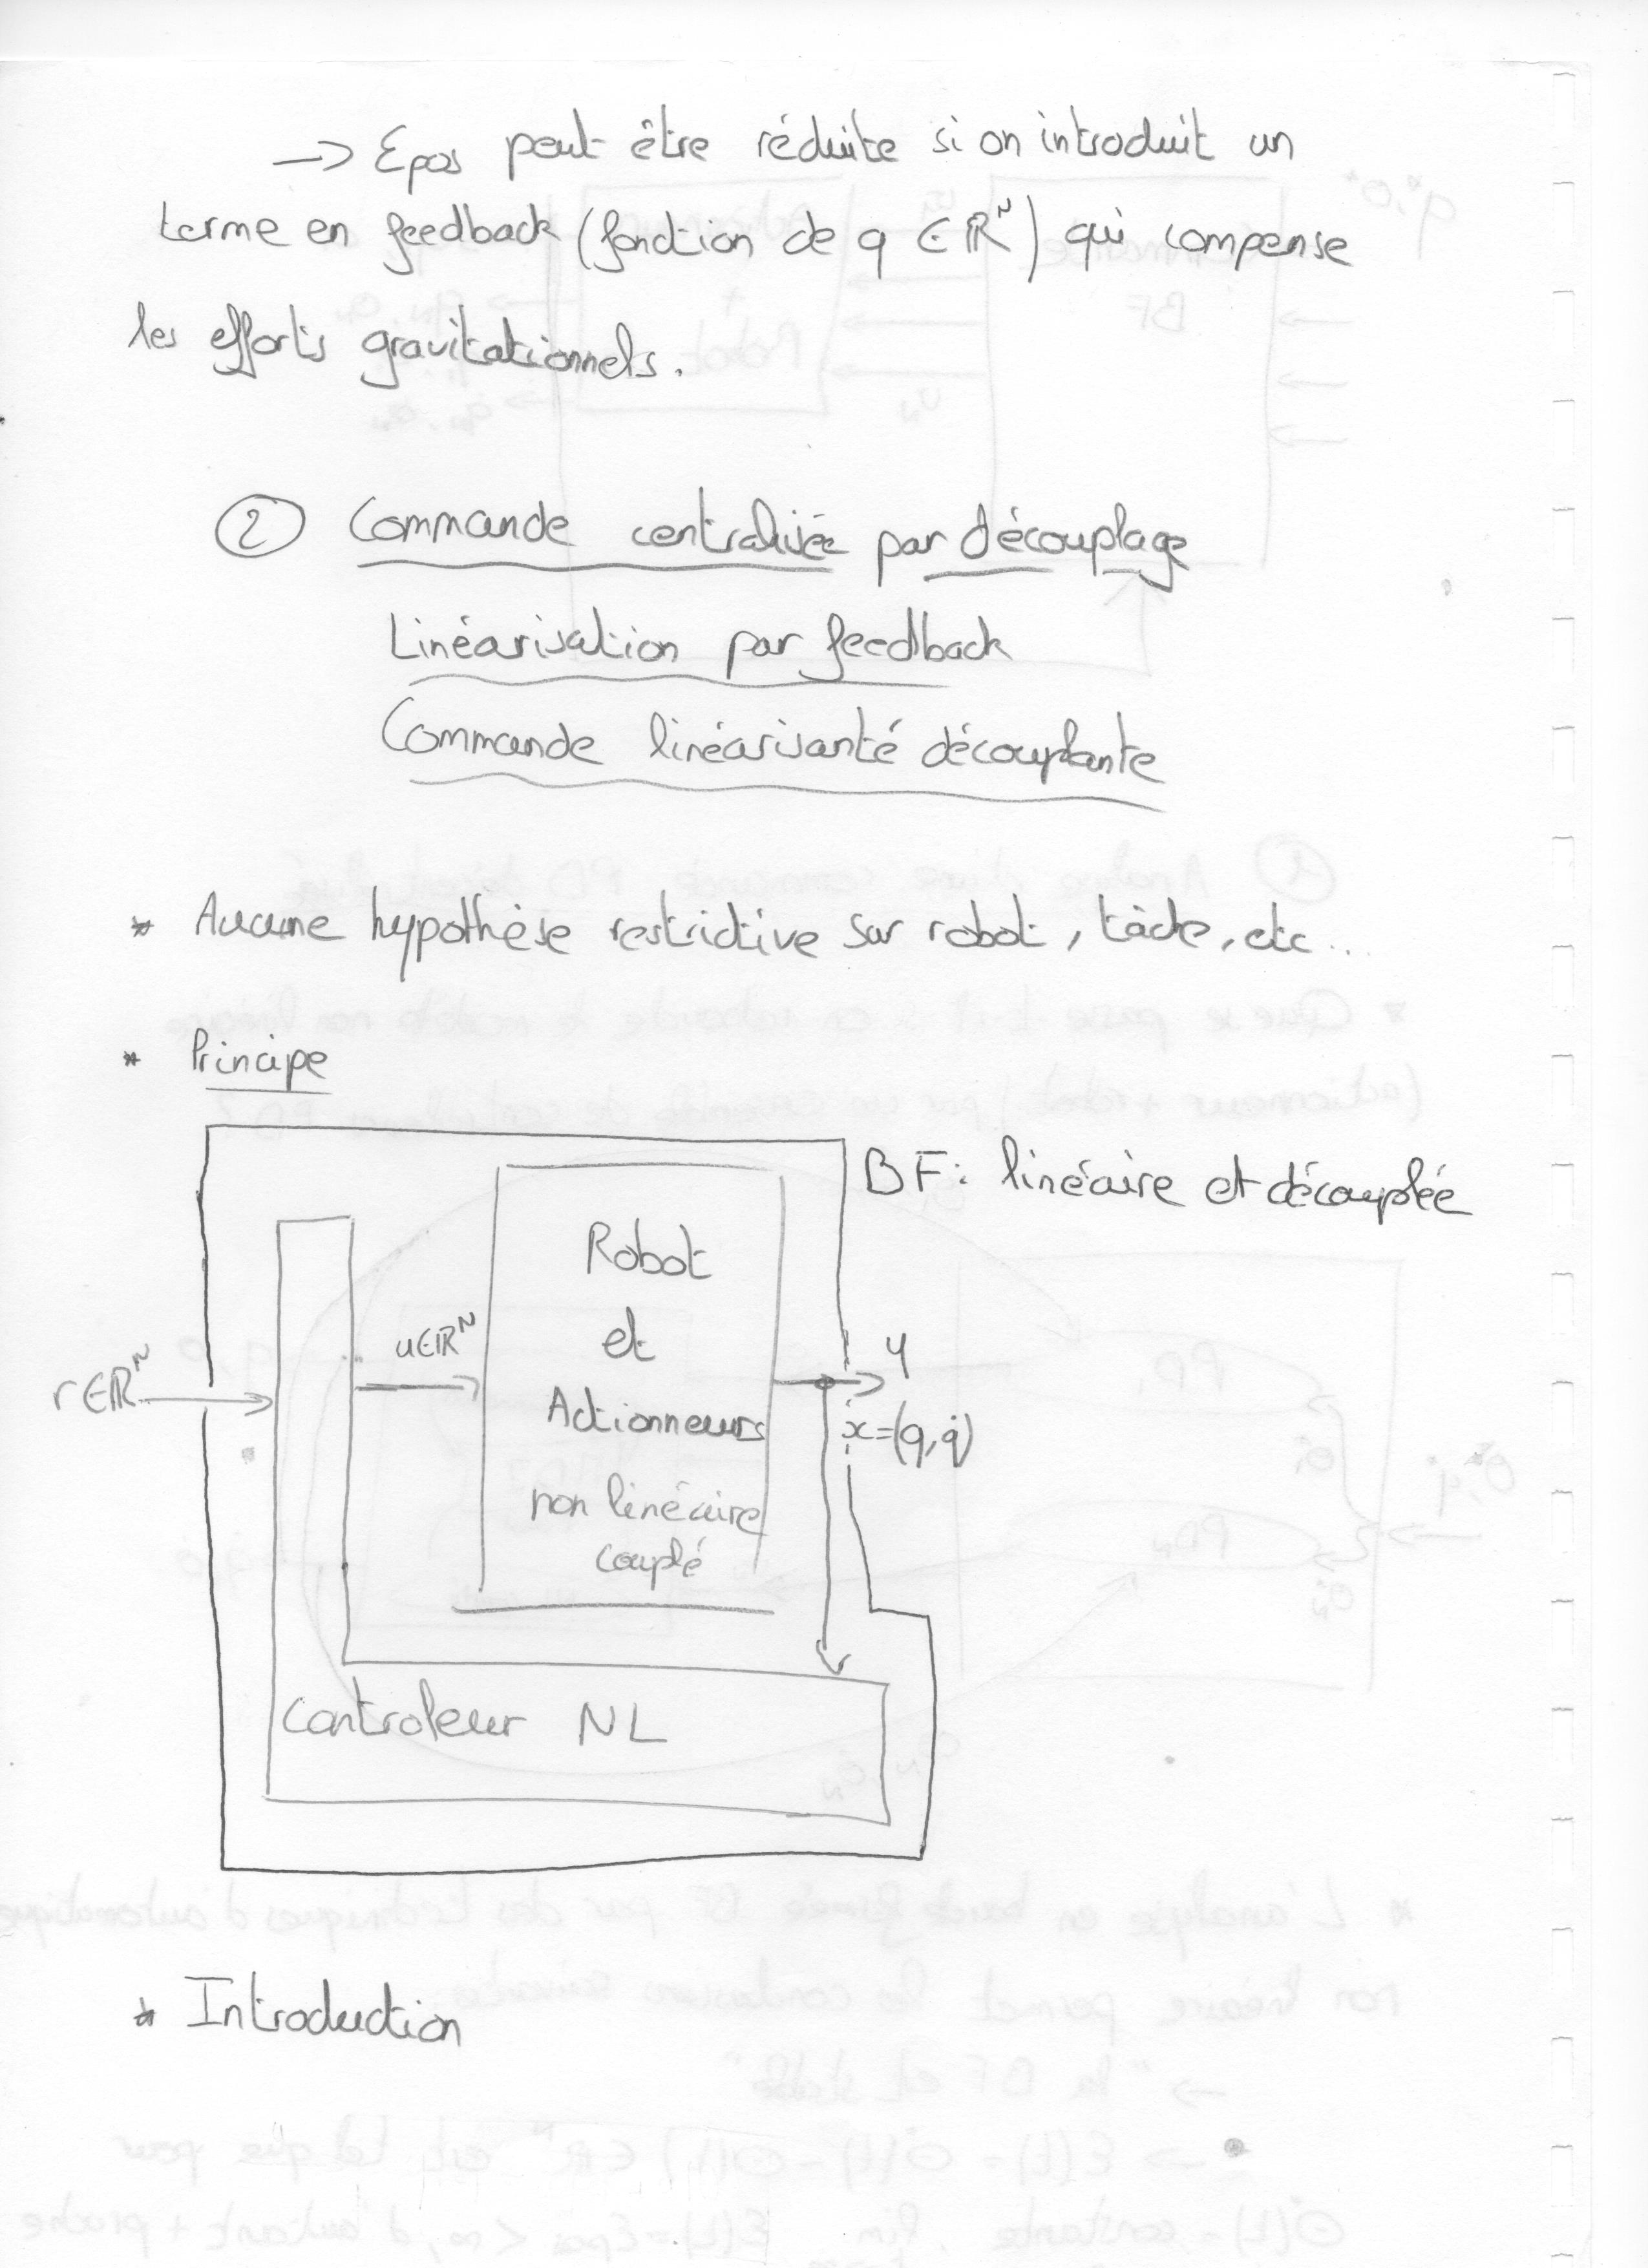 → Epos peut être réduite si on introduit un
terme en feedback (fonction de q ∈ ℝᴺ) qui compense
les efforts gravitationnels.
② Commande centralisée par découplage
Linéarisation par feedback
Commande linéarisanté découplante
* Aucune hypothèse restrictive sur robot, tâche, etc...
* Principe
BF: linéaire et découplée
Robot
et
Actionneurs
non linéaire
couplé
u∈ℝᴺ
r∈ℝᴺ
y
x=(q,q̇)
Controleur NL
* Introduction